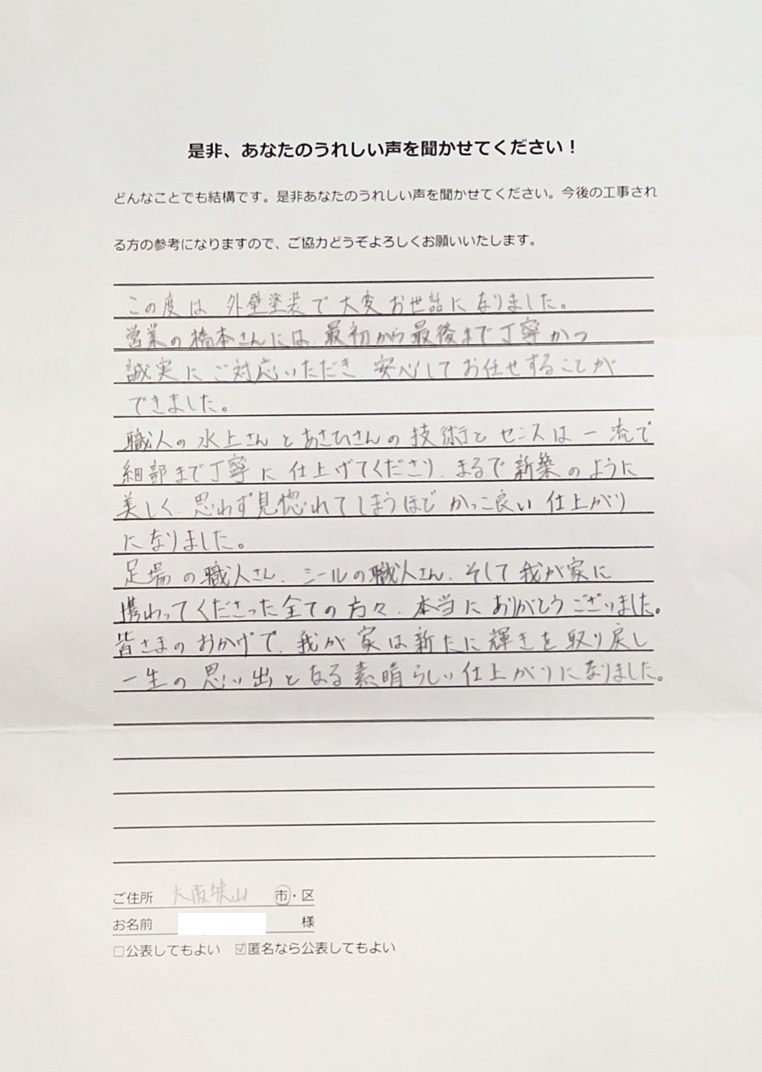 是非、あなたのうれしい声を聞かせてください！
どんなことでも結構です。是非あなたのうれしい声を聞かせてください。今後の工事され
る方の参考になりますので、ご協力どうぞよろしくお願いいたします。
この度は 外壁塗装で大変お世話になりました。
営業の橋本さんには、最初から最後まで丁寧かつ
誠実にご対応いただき、安心してお任せすることが
できました。
職人の水上さんとあさひさんの技術とセンスは一流で
細部まで丁寧に仕上げてくださり、まるで新築のように
美しく、思わず見惚れてしまうほどかっこ良い仕上がり
になりました。
足場の職人さん、シールの職人さん、そして我が家に
携わってくださった全ての方々、本当にありがとうございました。
皆さまのおかげで、我が家は新たに輝きを取り戻し
一生の思い出となる素晴らしい仕上がりになりました。
ご住所 大阪狭山 市・区
お名前 様
□公表してもよい ☑匿名なら公表してもよい